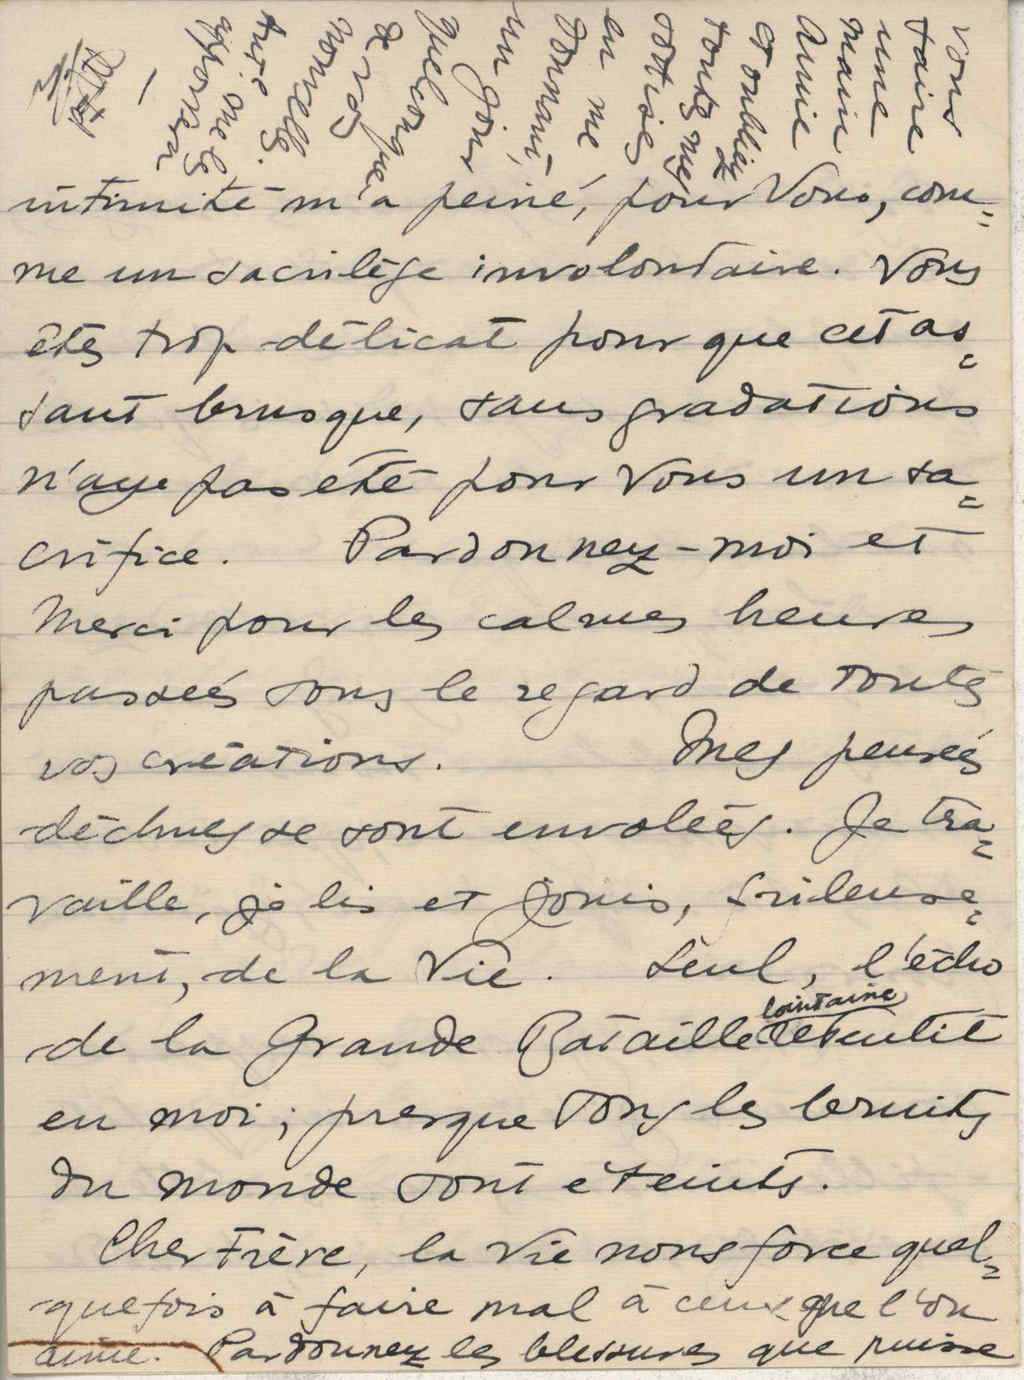 intimité m'a peiné, pour Vous, com=
me un sacrilège involontaire. Vous
êtes trop délicat pour que cet as=
saut brusque, sans gradations
n'aye pas été pour Vous un sa=
crifice. Pardonnez-moi et
Merci pour les calmes heures
passées sous le regard de toutes
vos créations. Mes pensées
déchues se sont envolées. Je tra=
vaille, je lis et jouis, frileuse=
ment, de la Vie. Seul, l'écho
lointaine
de la Grande Bataille retentit
en moi; presque tous les bruits
du monde sont éteints.
Cher Frère, la Vie nous force quel=
quefois à faire mal à ceux que l'on
aime. Pardonnez les blessures que puisse
vous
faire
une
main
amie
et oubliez
toutes mes
sottises
en me
donnant,
un jour
quelconque,
de vos
nouvelles.